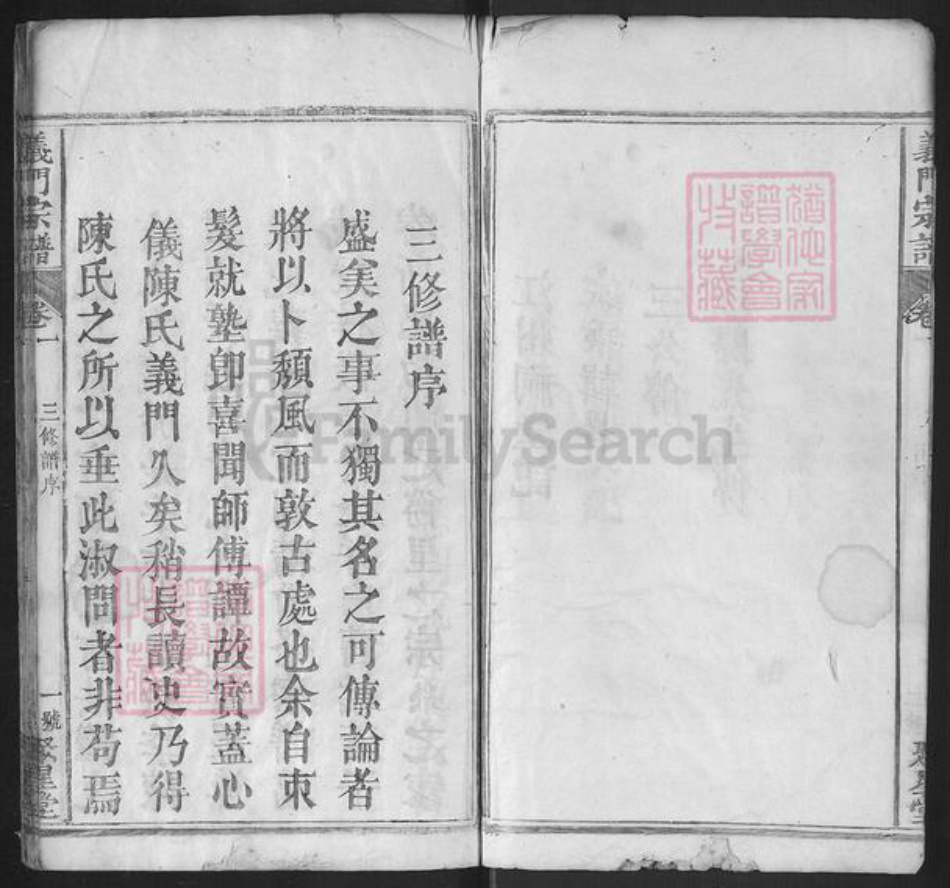 義門宗譜
卷一
三修譜序
盛矣之事不獨其名之可傳論者
將以卜頹風而敦古處也余自束
髮就塾卽喜聞師傅譚故實蓋心
儀陳氏義門久矣稍長讀史乃得
陳氏之所以垂此淑問者非苟焉
義門宗譜
卷一
三修譜序
一號
聚星堂
猶他家
譜學會
收藏
FamilySearch